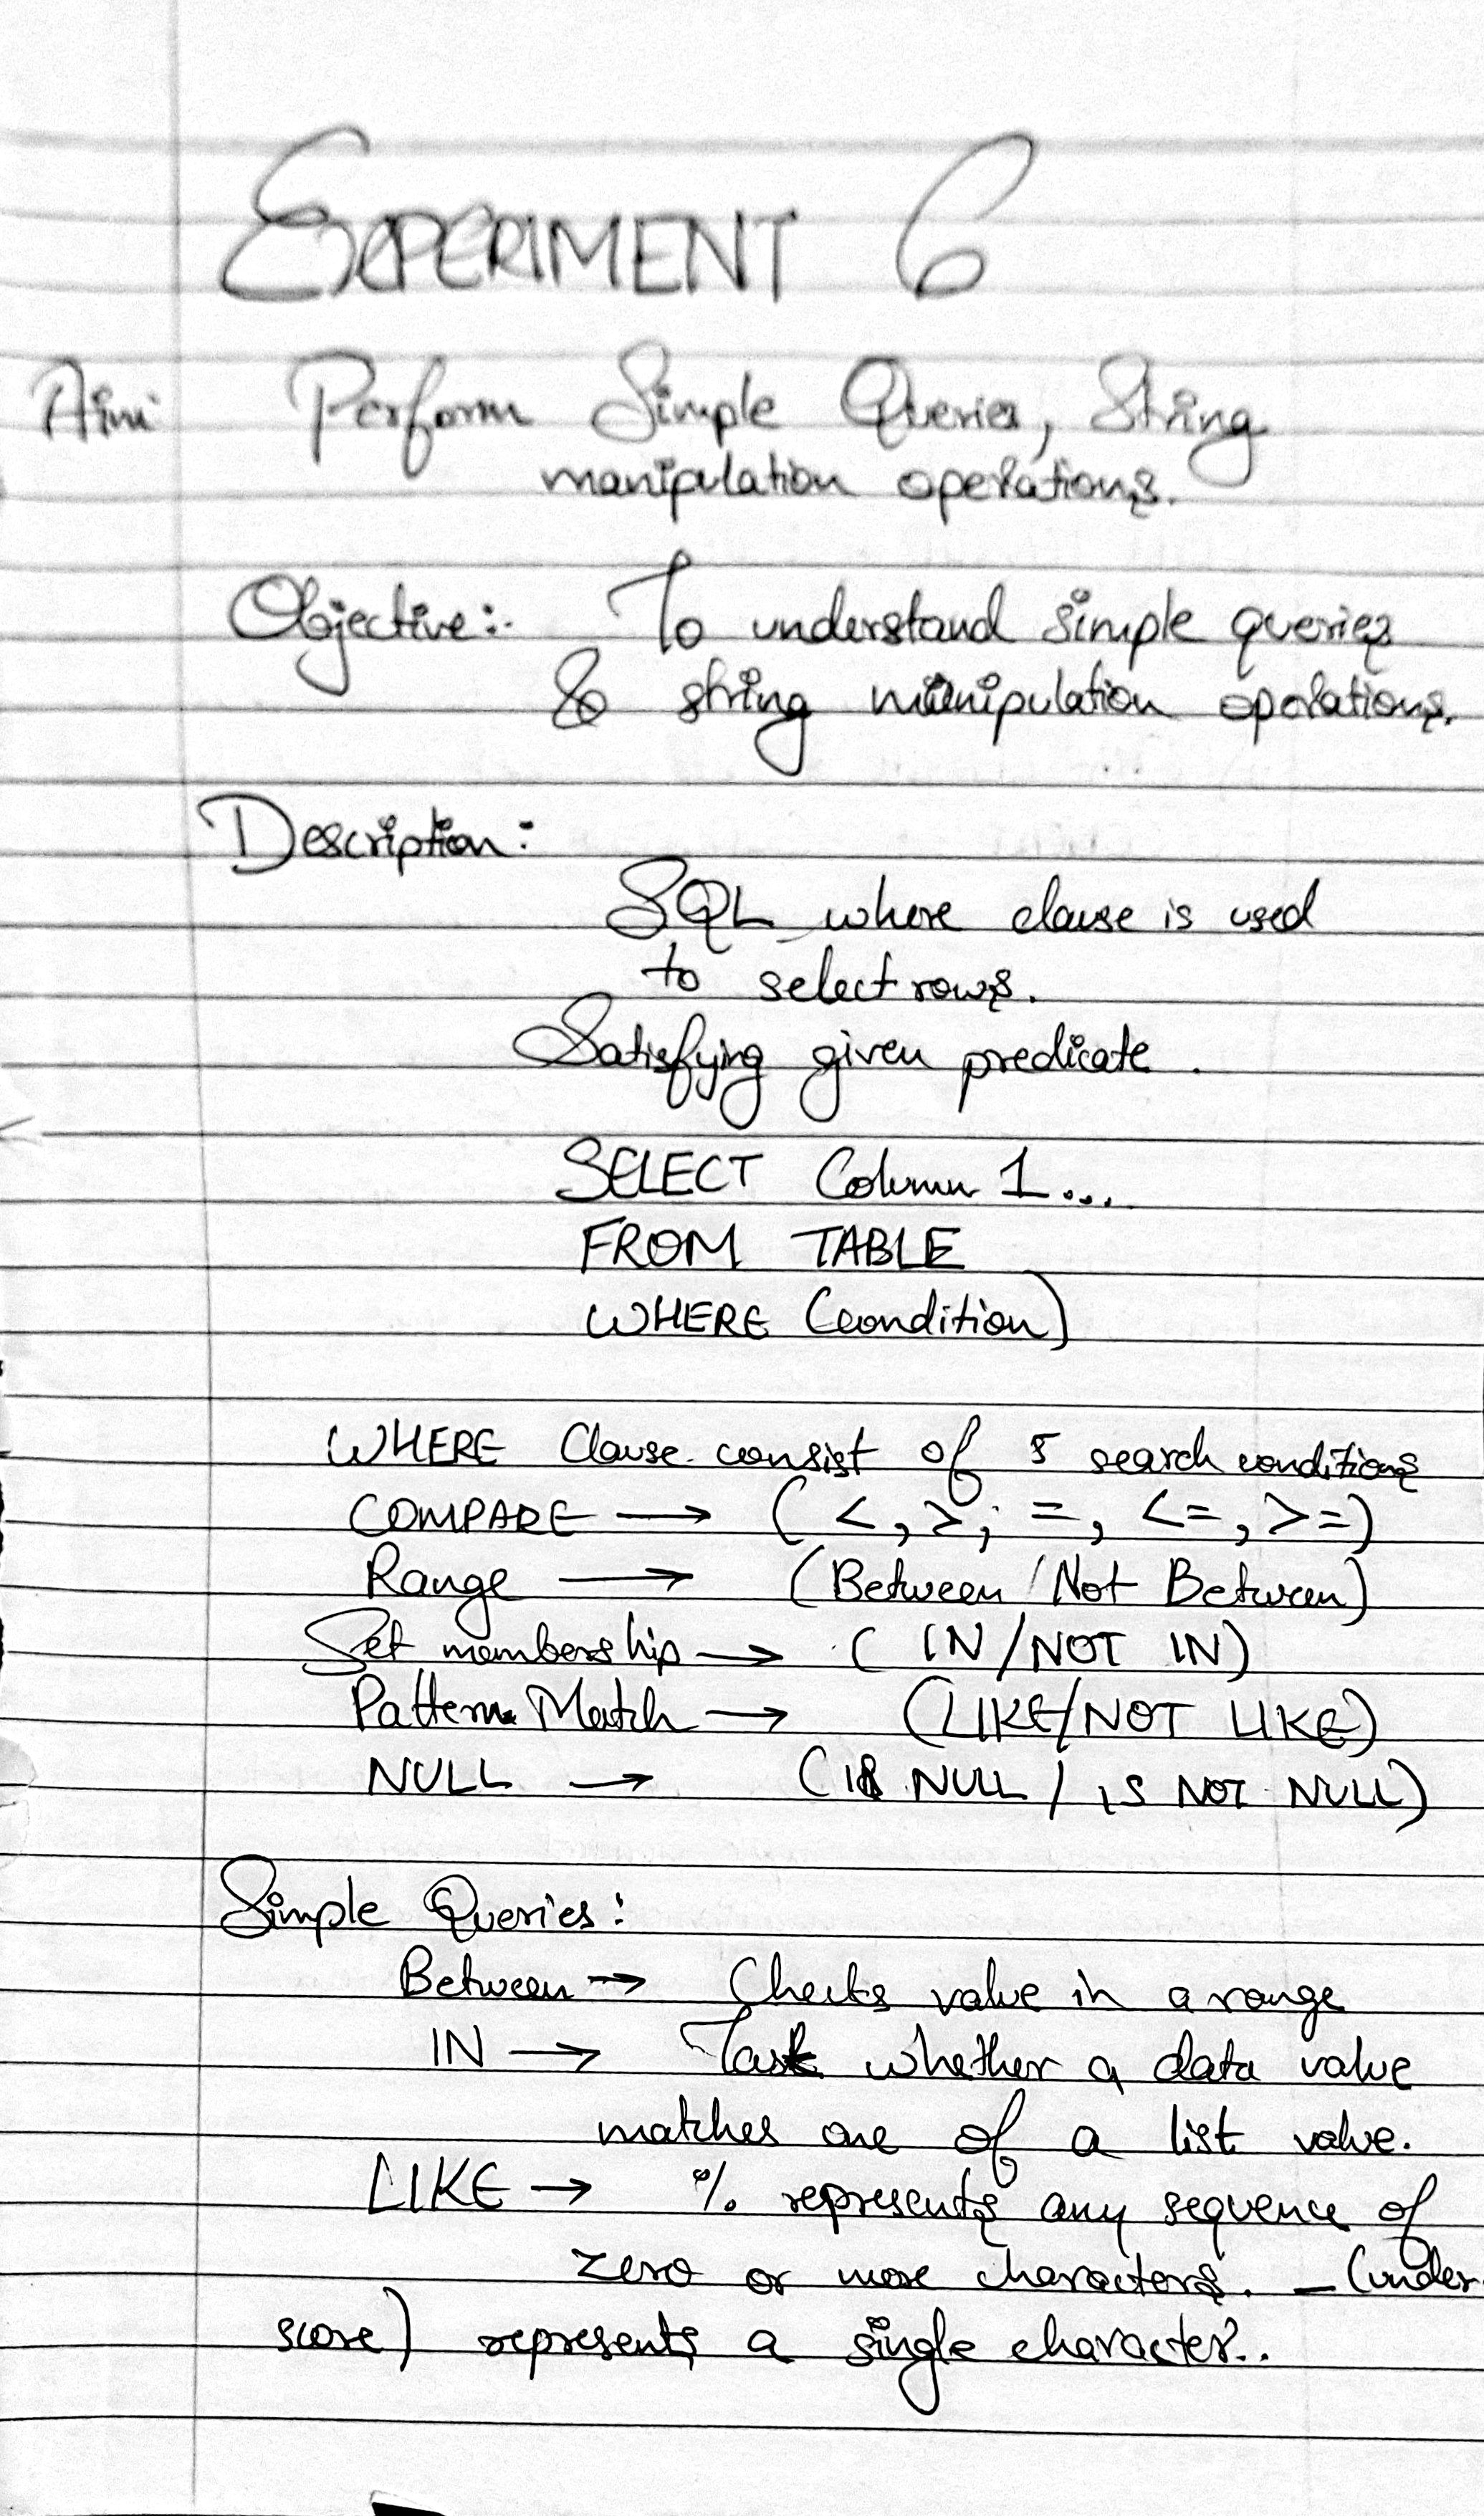 EXPERIMENT 6
Aim: Perform Simple Queries, String
manipulation operations.
Objective:- To understand simple queries
& string manipulation operations.
Description:
SQL where clause is used
to select rows.
Satisfying given predicate.
SELECT Column 1...
FROM TABLE
WHERE (condition)
WHERE Clause consist of 5 search conditions
COMPARE → ( <, >, =, <=, >=)
Range → (Between / Not Between)
Set membership → ( IN / NOT IN)
Pattern Match → (LIKE/NOT LIKE)
NULL → (IS NULL / IS NOT NULL)
Simple Queries:
Between → Checks value in a range
IN → Task whether a data value
matches one of a list value.
LIKE → % represents any sequence of
zero or more characters. _ (under
score) represents a single character..